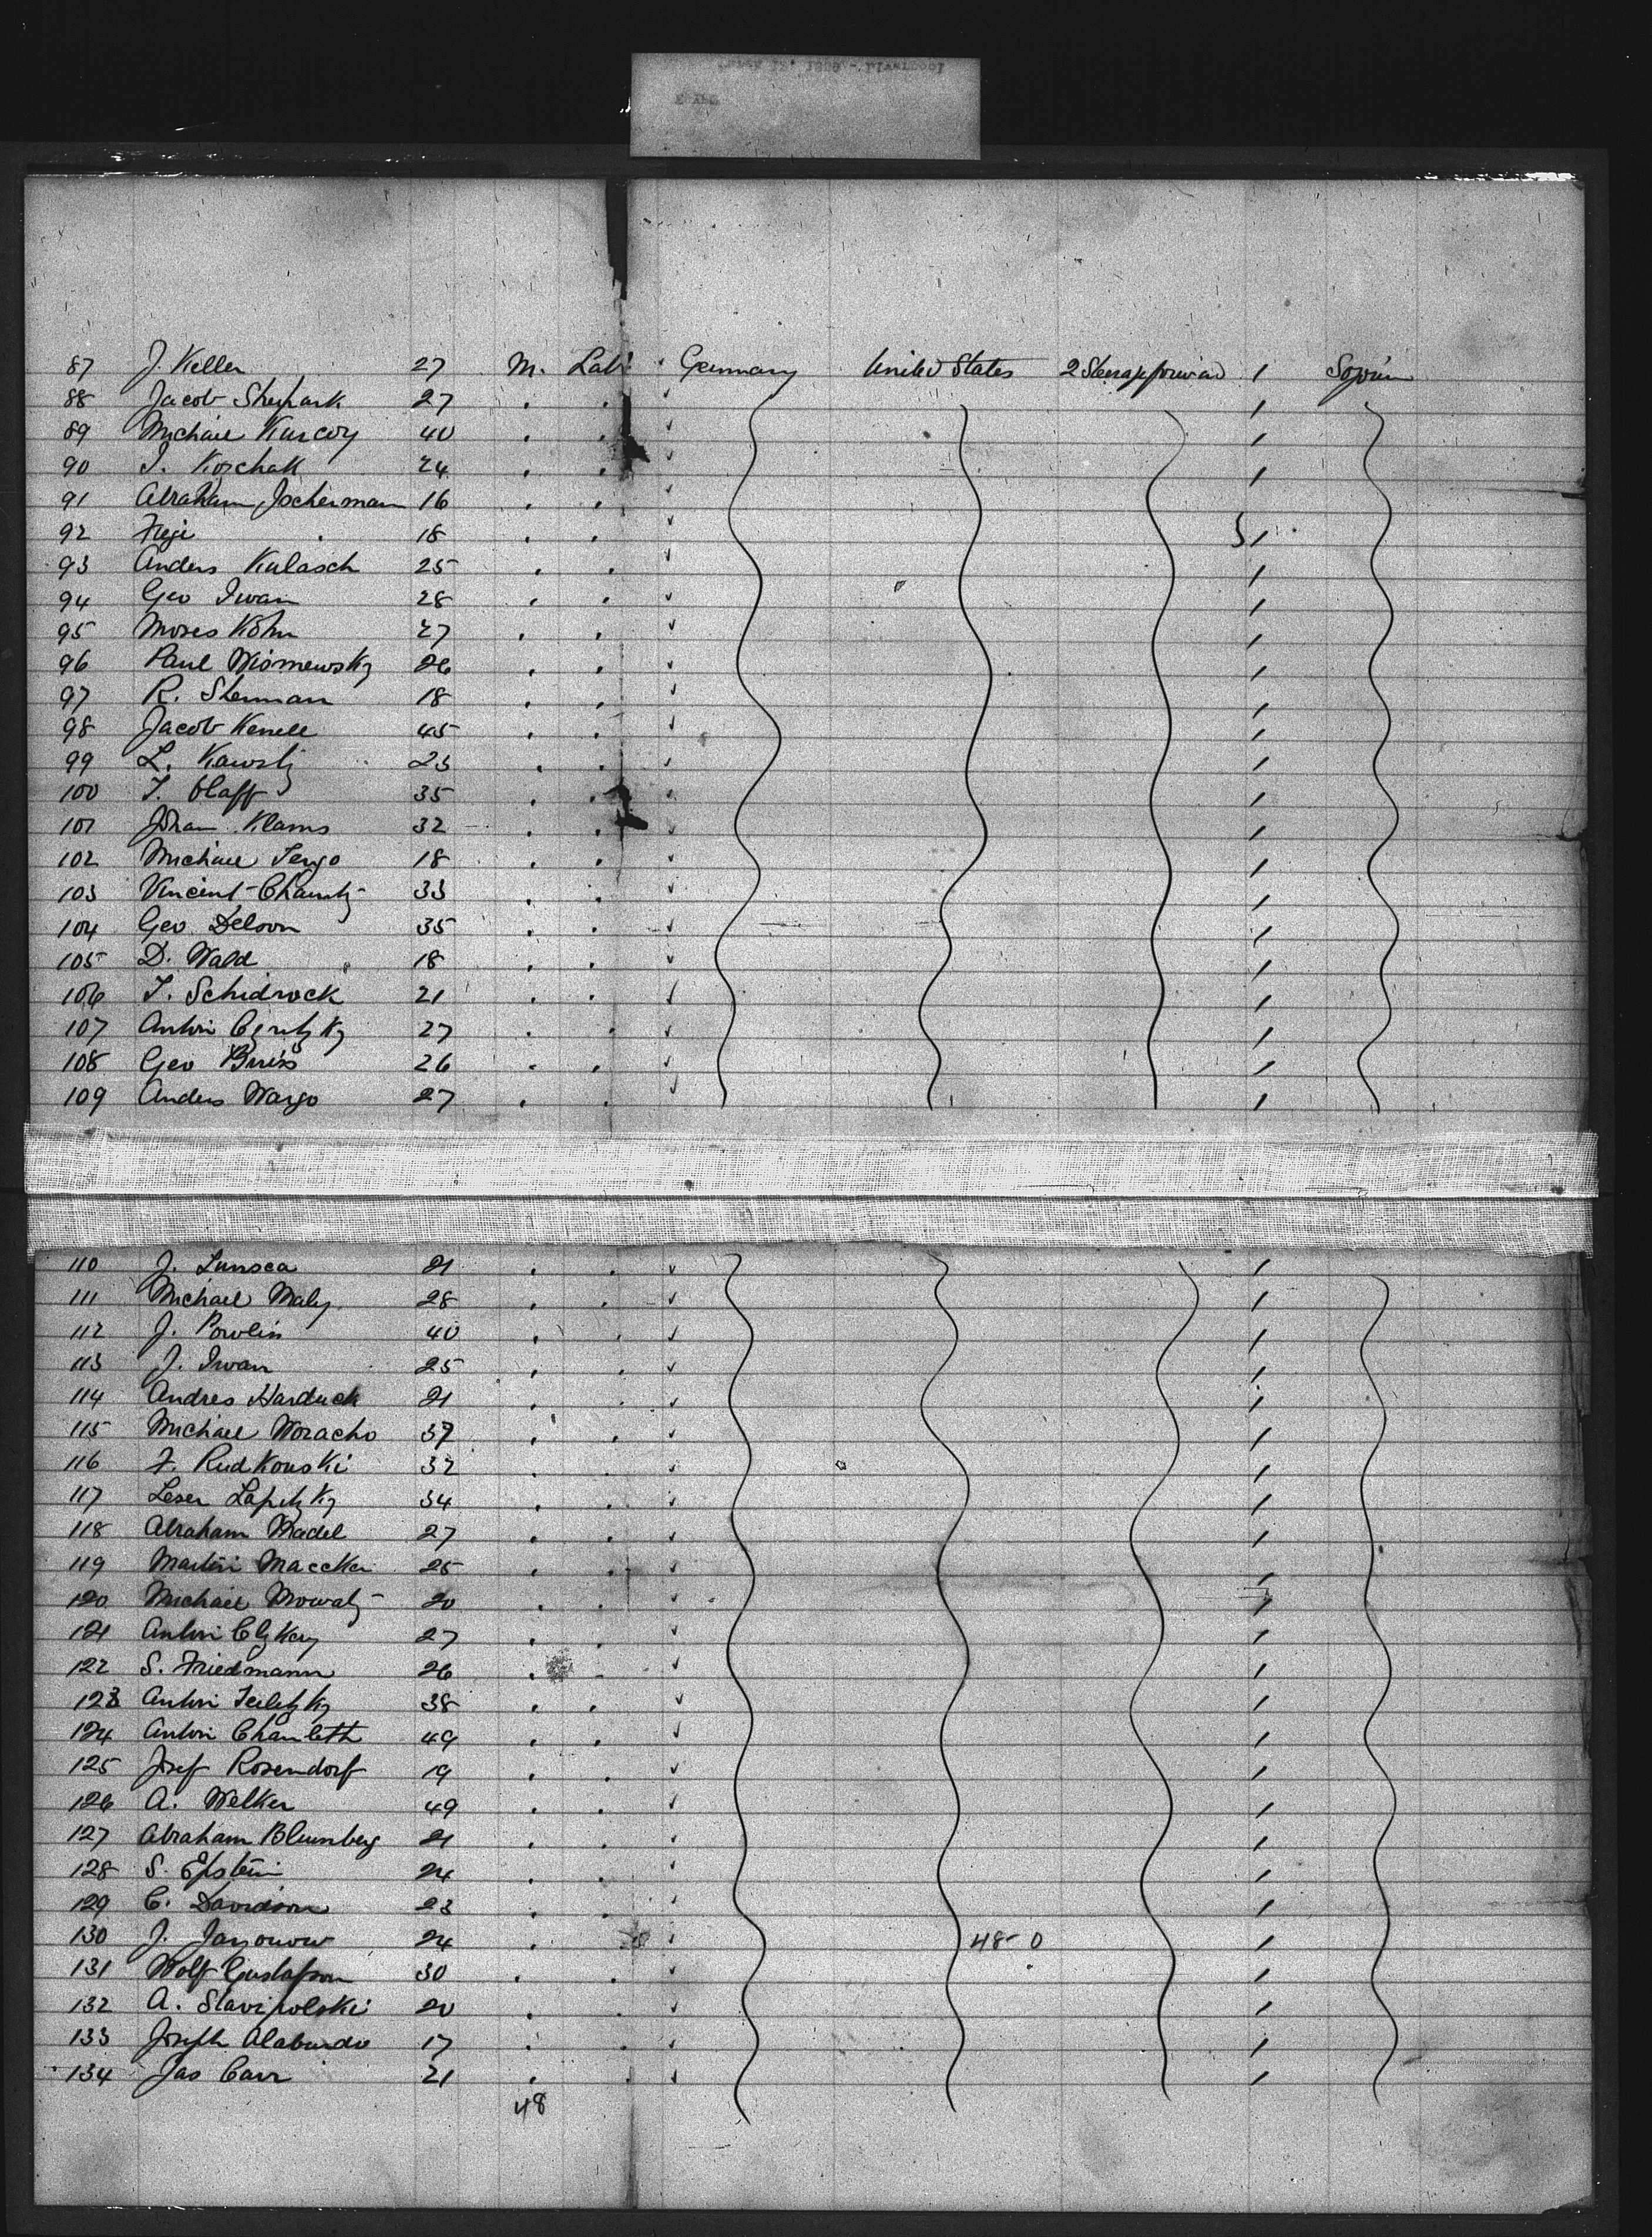 87 J. Keller 27 M. Lab. Germany United States 2 Steerage forward 1 Sojourn
88 Jacob Shepark 27 1
89 Michael Kurcoy 40 1
90 J. Korchak 24 1
91 Abraham Jocherman 16
92 Feige 18 1
93 Anders Kulasch 25 1
94 Geo Iwan 28 1
95 Moses Kohn 27 1
96 Paul Wismewsky 26 1
97 R. Sherman 18 1
98 Jacob Kenele 45 1
99 L. 23 1
100 35 1
101 Johan Klams 32 1
102 Michael 18 1
103 Vincent 33 1
104 Geo Deloon 35 1
105 D. Wald 18 1
106 Schidrock 21 1
107 Anton 27 1
108 Geo 26 1
109 Anders Wargo 27 1
110 J. Lunsca 21 1
111 Michael Maly 28 1
112 J. Powlin 40 1
113 J. Iwan 25 1
114 Andres Harduck 21 1
115 Michael Woracho 37 1
116 F. Rudkouski 32 1
117 Leser Lapitzky 34 1
118 Abraham Madel 27 1
119 Martin Maccker 25 1
120 Michael 20 1
121 Anton 27 1
122 S. Friedmann 26 1
123 Anton 38 1
124 Anton Chamleth 49 1
125 Josef Rosendorf 19 1
126 A. Welker 49 1
127 Abraham Blumberg 21 1
128 S. Epstein 24 1
129 C. Davidson 23 1
130 J. Janonow 24 48-0 1
131 Wolf Gustafson 30 1
132 A. Slavipolski 20 1
133 Joseph Alaburdo 17 1
134 Jas Carr 21 1
48